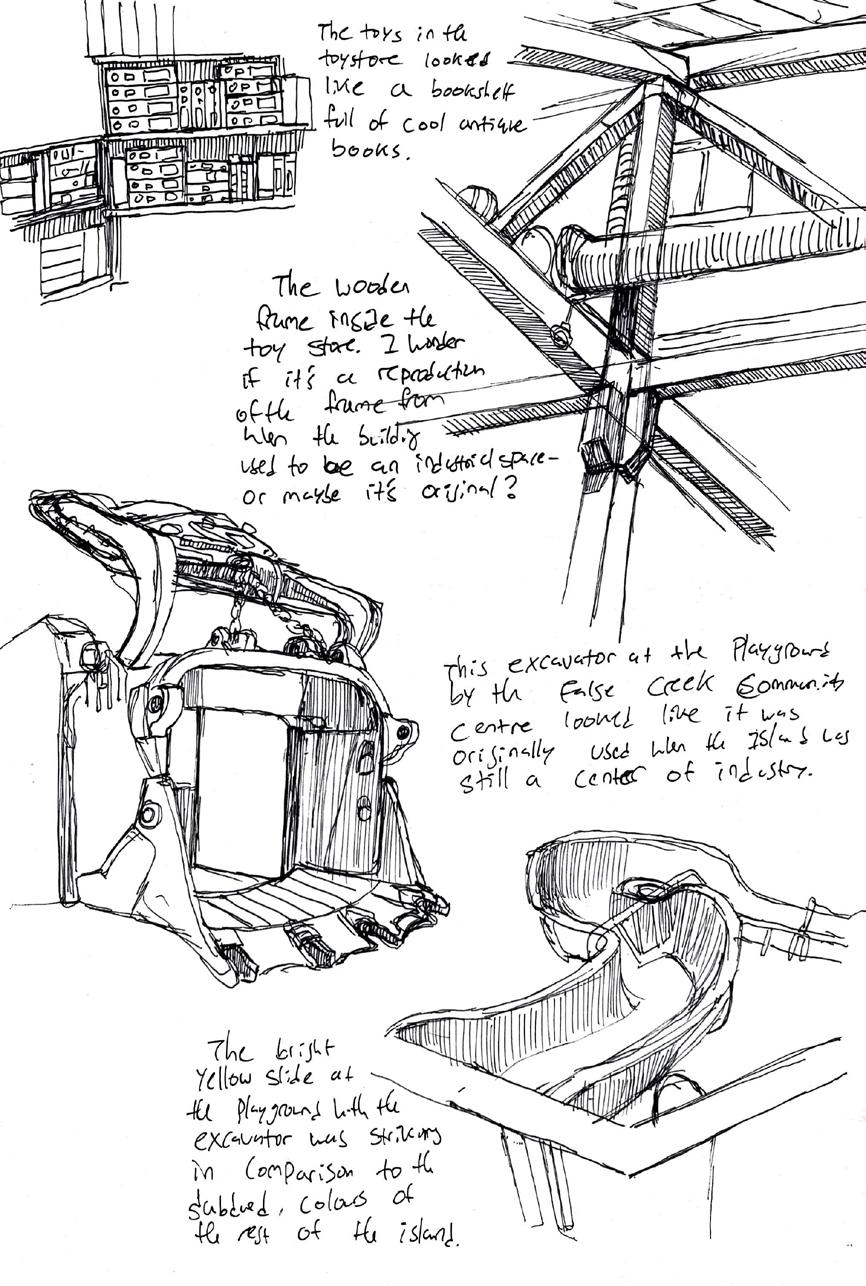 The toys in the
toystore looked
like a bookshelf
full of cool antique
books.
The wooden
frame inside the
toy store. I wonder
if it's a reproduction
of the frame from
when the building
used to be an industrial space-
or maybe it's original?
This excavator at the Playground
by the False Creek Community
Centre looked like it was
originally used when the Island was
still a center of industry.
The bright
yellow slide at
the playground with the
excavator was striking
in comparison to the
subdued, colours of
the rest of the island.